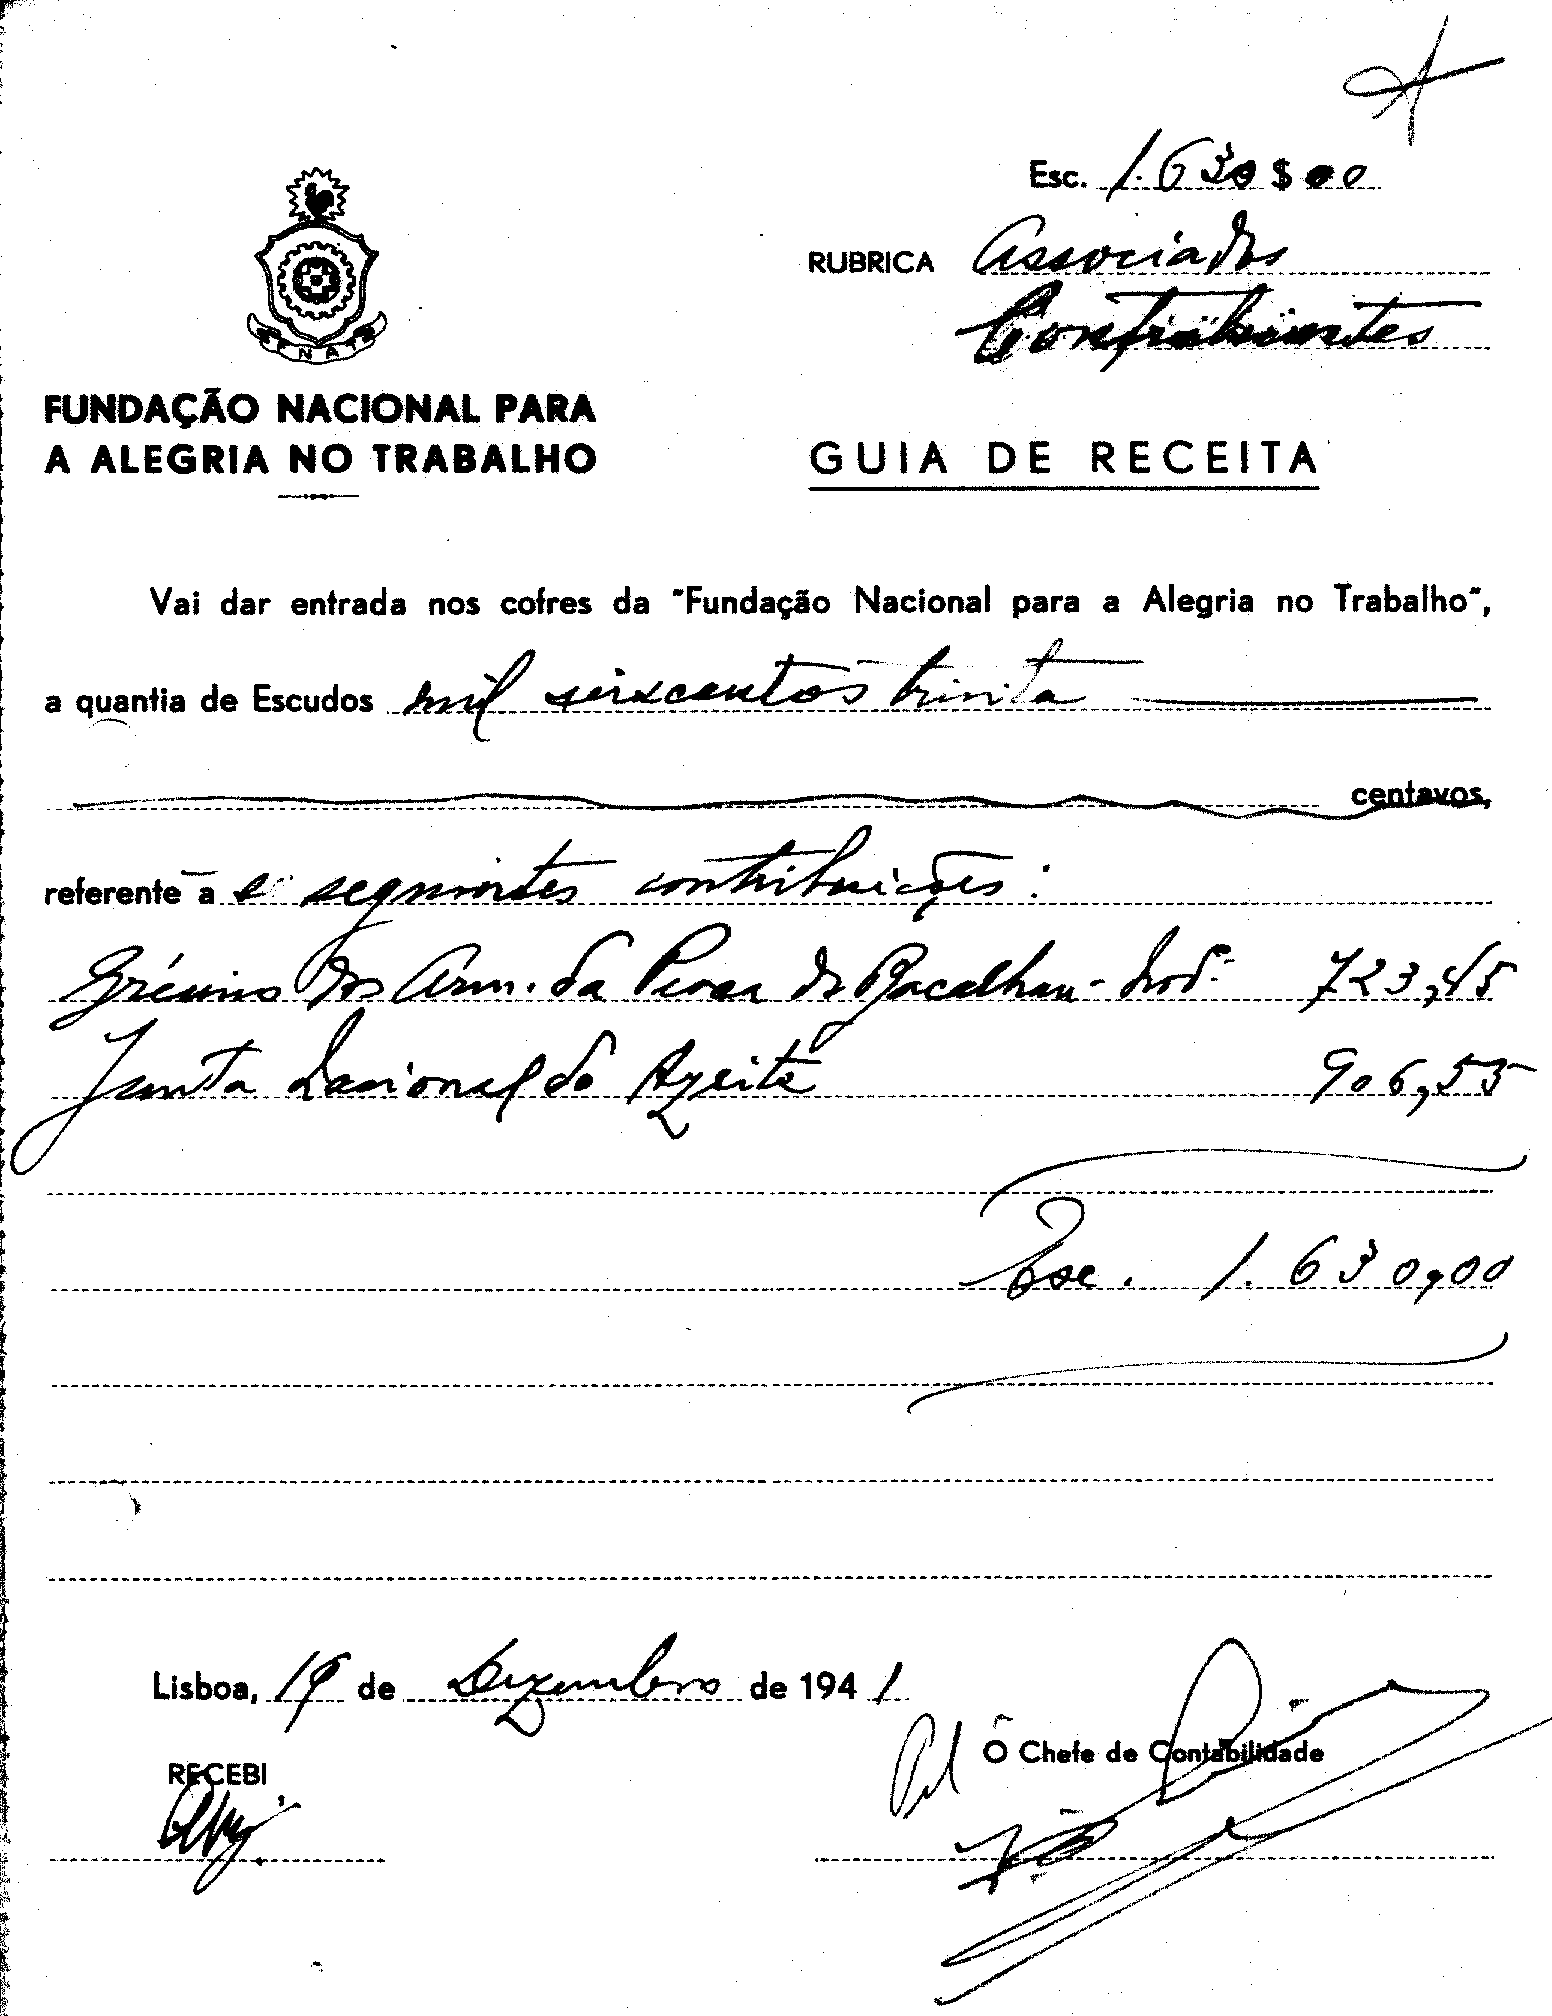 Esc. 1.630$00
RUBRICA Associados
Contribuintes
FNAT
FUNDAÇÃO NACIONAL PARA
A ALEGRIA NO TRABALHO
GUIA DE RECEITA
Vai dar entrada nos cofres da "Fundação Nacional para a Alegria no Trabalho",
a quantia de Escudos mil seiscentos trinta
centavos,
referente a seguintes contribuições:
Grémio dos Arm. da Pesca do Bacalhau - 723,45
Junta Nacional do Azeite 906,55
Esc. 1.630,00
Lisboa, 19 de Dezembro de 1941
Pel O Chefe de Contabilidade
RECEBI